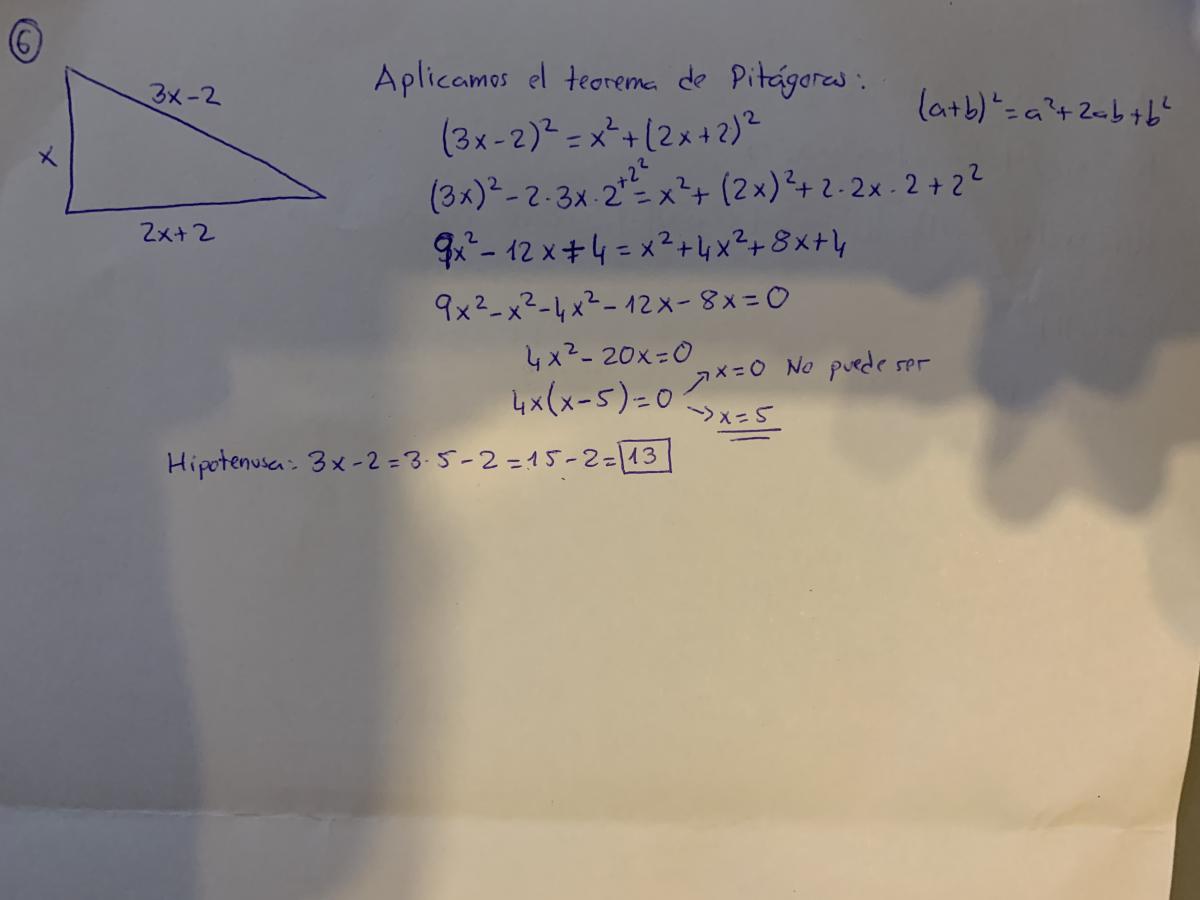 6
3x-2
x
2x+2
Aplicamos el teorema de Pitágoras:
(a+b)²=a²+2ab+b²
(3x-2)²=x²+(2x+2)²
(3x)²-2·3x·2+2²=x²+(2x)²+2·2x·2+2²
9x²-12x+4=x²+4x²+8x+4
9x²-x²-4x²-12x-8x=0
4x²-20x=0
4x(x-5)=0
x=0 No puede ser
x=5
Hipotenusa: 3x-2=3·5-2=15-2=13